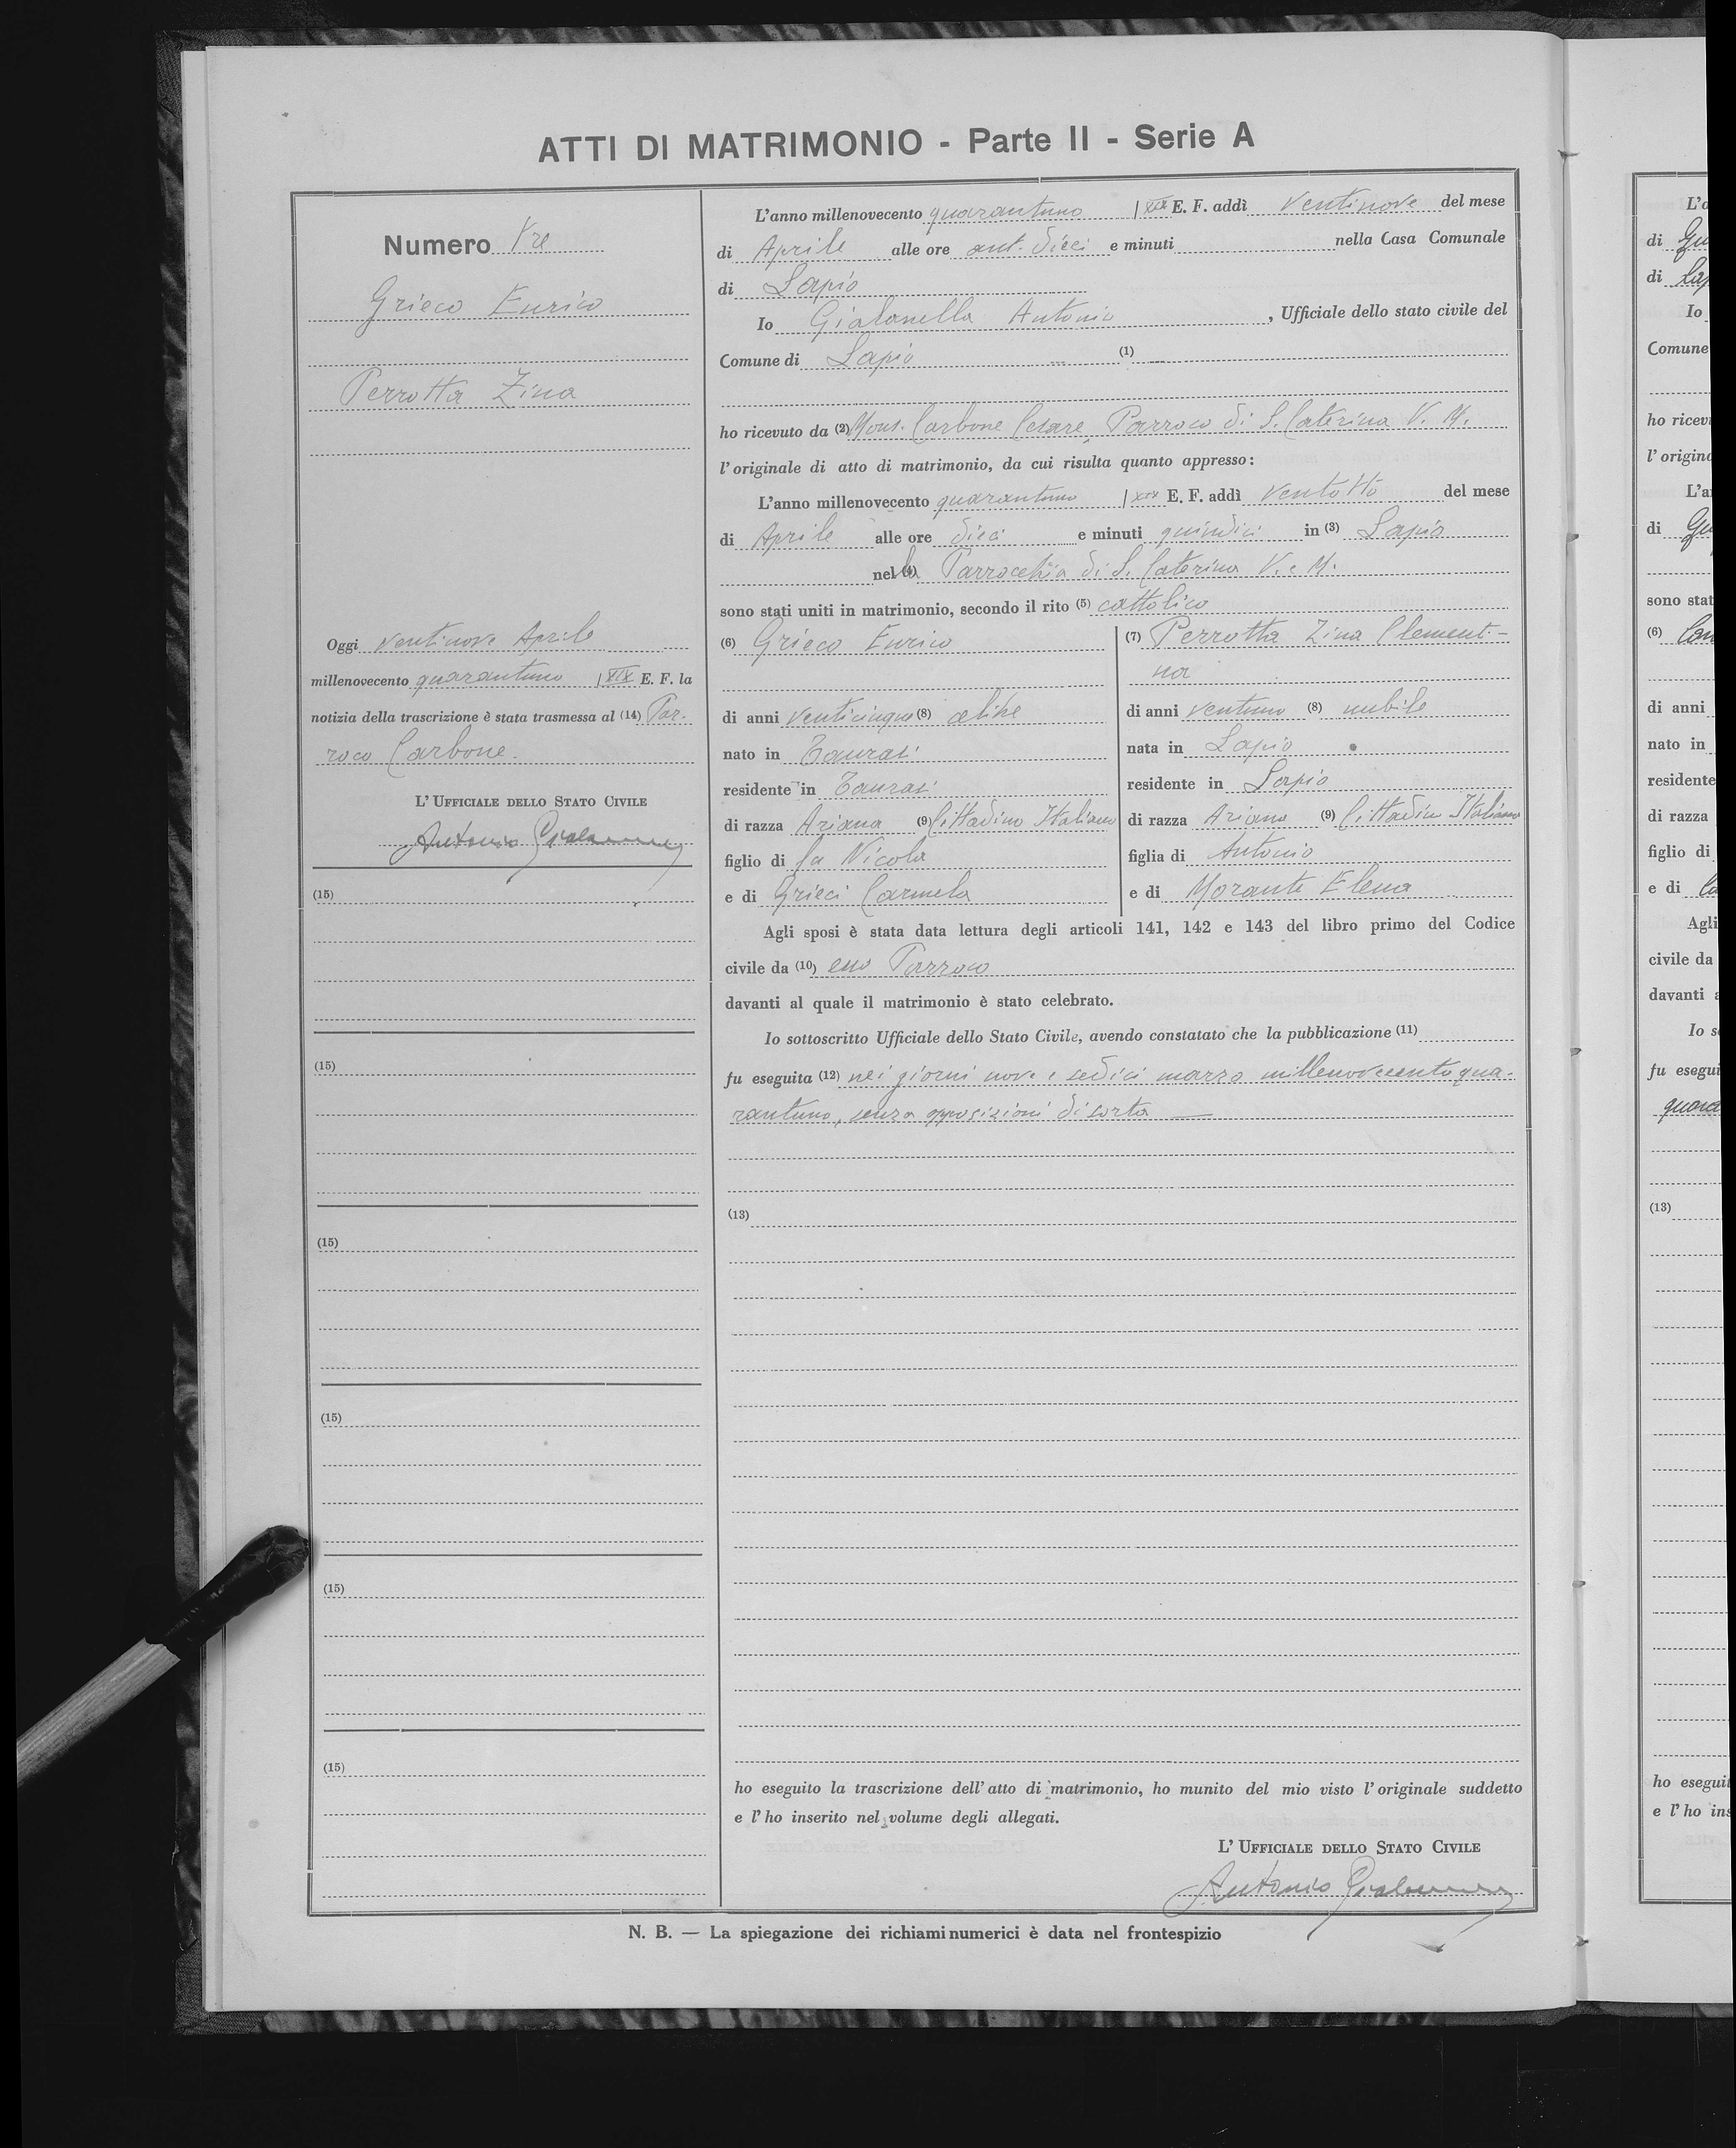 ATTI DI MATRIMONIO - Parte II - Serie A
Numero Tre
Grieco Enrico
Perrotta Zina
Oggi ventinove Aprile
millenovecento quarantuno XIX E. F. la
notizia della trascrizione è stata trasmessa al (14) Par-
roco Carbone.
L' UFFICIALE DELLO STATO CIVILE
Antonio
(15)
(15)
(15)
(15)
(15)
(15)
L'anno millenovecento quarantuno XIX E. F. addì ventinove del mese
di Aprile alle ore ant. dieci e minuti nella Casa Comunale
di Lapio
Io Gialanella Antonio, Ufficiale dello stato civile del
Comune di Lapio (1)
ho ricevuto da (2) Mons. Carbone Cesare, Parroco di S. Caterina V. M.
l'originale di atto di matrimonio, da cui risulta quanto appresso:
L'anno millenovecento quarantuno XIX E. F. addì ventotto del mese
di Aprile alle ore dieci e minuti quindici in (3) Lapio
nella (4) Parrocchia di S. Caterina V. e M.
sono stati uniti in matrimonio, secondo il rito (5) cattolico
(6) Grieco Enrico
di anni venticinque (8) celibe
nato in Taurasi
residente in Taurasi
di razza Ariana (9) Cittadino Italiano
figlio di fu Nicola
e di Grieci Carmela
(7) Perrotta Zina Clementi-
na
di anni ventuno (8) nubile
nata in Lapio
residente in Lapio
di razza Ariana (9) Cittadina Italiana
figlia di Antonio
e di Morante Elena
Agli sposi è stata data lettura degli articoli 141, 142 e 143 del libro primo del Codice
civile da (10) esso Parroco
davanti al quale il matrimonio è stato celebrato.
Io sottoscritto Ufficiale dello Stato Civile, avendo constatato che la pubblicazione (11)
fu eseguita (12) nei giorni nove e sedici marzo millenovecentoqua-
rantuno, senza opposizioni di sorta
(13)
ho eseguito la trascrizione dell'atto di matrimonio, ho munito del mio visto l'originale suddetto
e l'ho inserito nel volume degli allegati.
L' UFFICIALE DELLO STATO CIVILE
Antonio
N. B. — La spiegazione dei richiami numerici è data nel frontespizio
di
di
Io
Comune
ho ricev
l'origin
di
sono stat
(6)
di anni
nato in
residente
di razza
figlio di
e di
Agli
civile da
davanti
Io s
fu esegui
(13)
ho eseguit
e l'ho ins